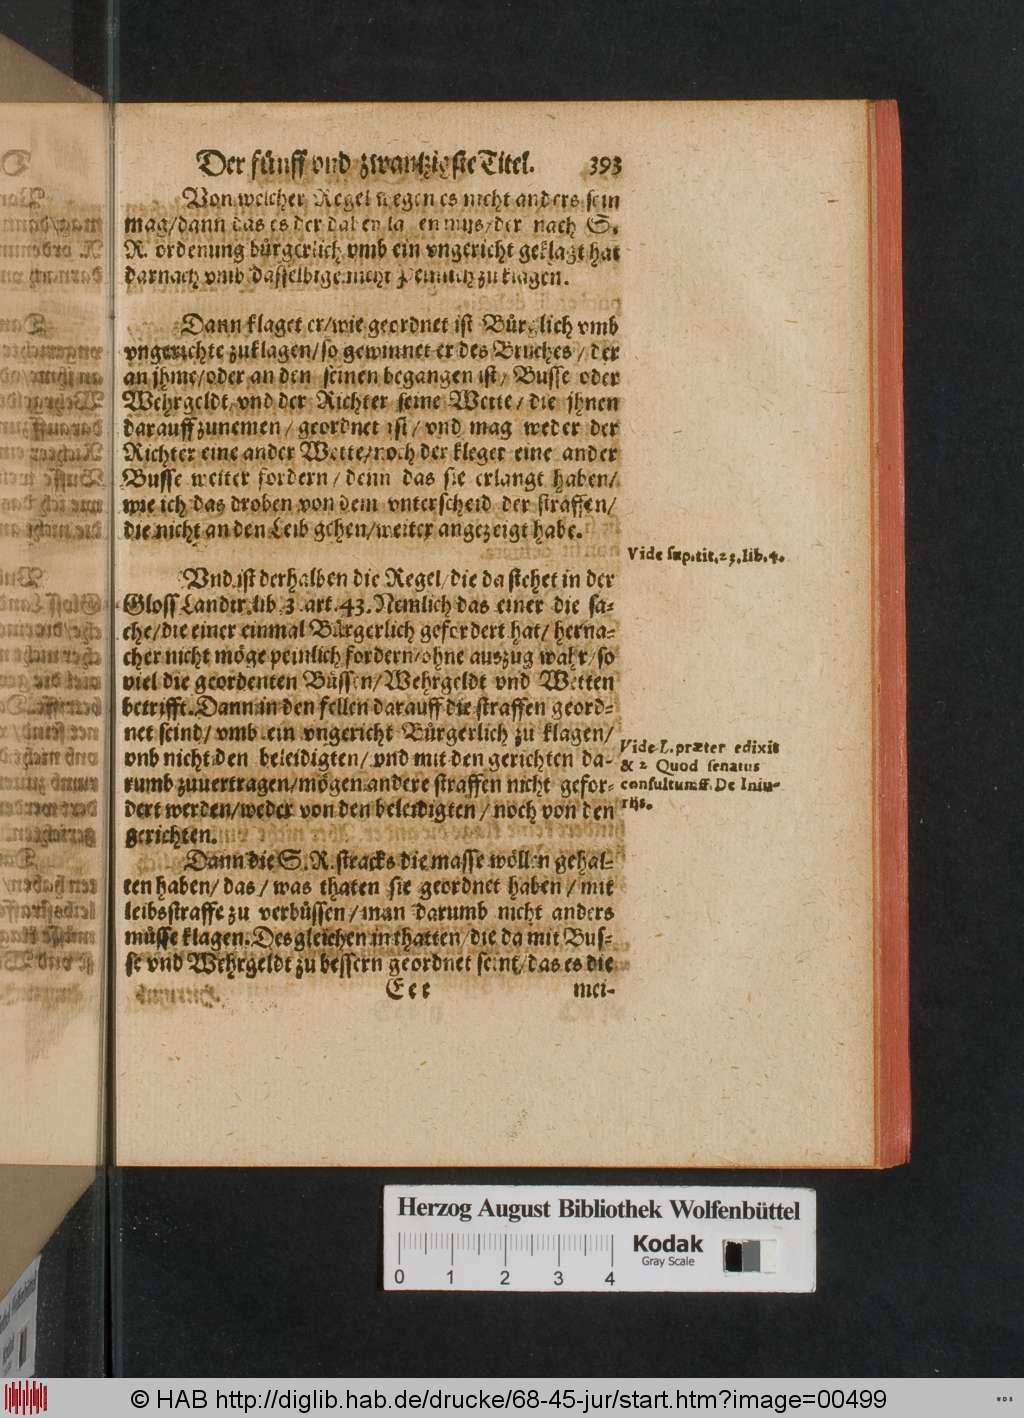 Der fünff vnd zwantzigste Titel. 393
Von welcher Regel wegen es nicht anders sein
mag/dann das es der dabey la en mus/der nach S.
R. ordenung bürgerlich vmb ein vngericht geklagt hat
darnach vmb dasselbige nicht peinlich zuklagen.
Dann klaget er/wie geordnet ist Bürglich vmb
vngerichte zuklagen/so gewinnet er des Bruches/der
an jhme/oder an den seinen begangen ist/Busse oder
Wehrgeldt/vnd der Richter seine Wette/die jhnen
darauff zunemen/geordnet ist/vnd mag weder der
Richter eine ander Wette/noch der kleger eine ander
Busse weiter fordern/denn das sie erlangt haben/
wie ich das droben von dem vnterscheid der straffen/
die nicht an den Leib gehen/weiter angezeigt habe.
Vide sup.tit.23.lib.4.
Vnd ist derhalben die Regel/die da stehet in der
Gloss Landtr.lib.3.art.43.Nemlich das einer die sa-
che/die einer einmal Bürgerlich gefordert hat/herna-
cher nicht möge peinlich fordern/ohne auszug wahr/so
viel die geordenten Büssen/Wehrgeldt vnd Wetten
betrifft.Dann in den fellen darauff die straffen geord-
net seind/vmb ein vngericht Bürgerlich zu klagen/
vnb nicht den beleidigten/vnd mit den gerichten da-
rumb zuuertragen/mögen andere straffen nicht gefor-
dert werden/weder von den beleidigten/noch von den
gerichten.
Vide L.præter edixit
& 2 Quod senatus
consultum ff. De Iniu-
rijs.
Dann die S.R.stracks die masse wöllen gehal-
ten haben/das/was thaten sie geordnet haben/mit
leibsstraffe zu verbüssen/man darumb nicht anders
müsse klagen.Desgleichen in thatten/die da mit Bus-
se vnd Wehrgeldt zu bessern geordnet seint/das es die
Eee mei-
Herzog August Bibliothek Wolfenbüttel
0 1 2 3 4
Kodak
Gray Scale
© HAB http://diglib.hab.de/drucke/68-45-jur/start.htm?image=00499